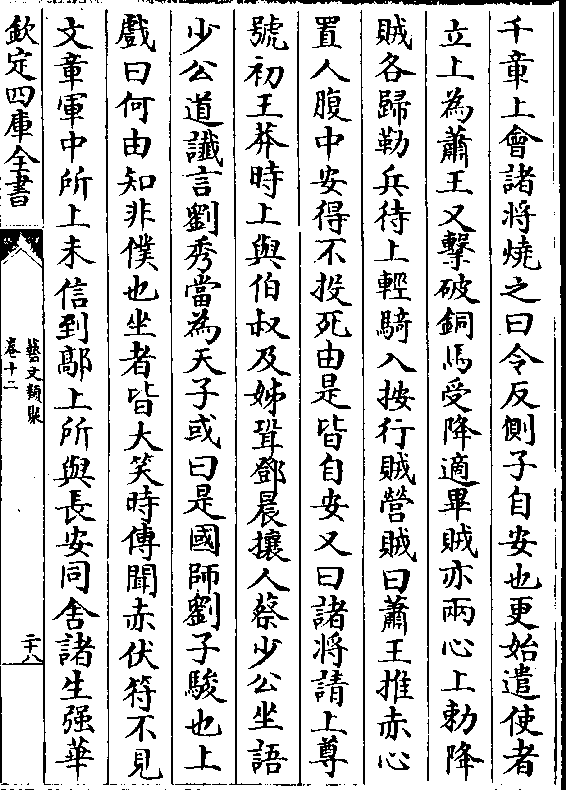 千章上會諸將燒之曰令反側子自安也更始遣使者
立上為蕭王又擊破銅馬受降適畢賊亦兩心上勅降
賊各歸勒兵待上輕騎入按行賊營賊曰蕭王推赤心
置人腹中安得不投死由是皆自安又曰諸將請上尊
號初王莽時上與伯叔及姊壻鄧晨攘人蔡少公坐語
少公道讖言劉秀當為天子或曰是國師劉子駿也上
戲曰何由知非僕也坐者皆大笑時傳聞赤伏符不見
文章軍中所上未信到鄗上所與長安同舍諸生强華
欽定四庫全書
藝文類聚
卷十二
二十八